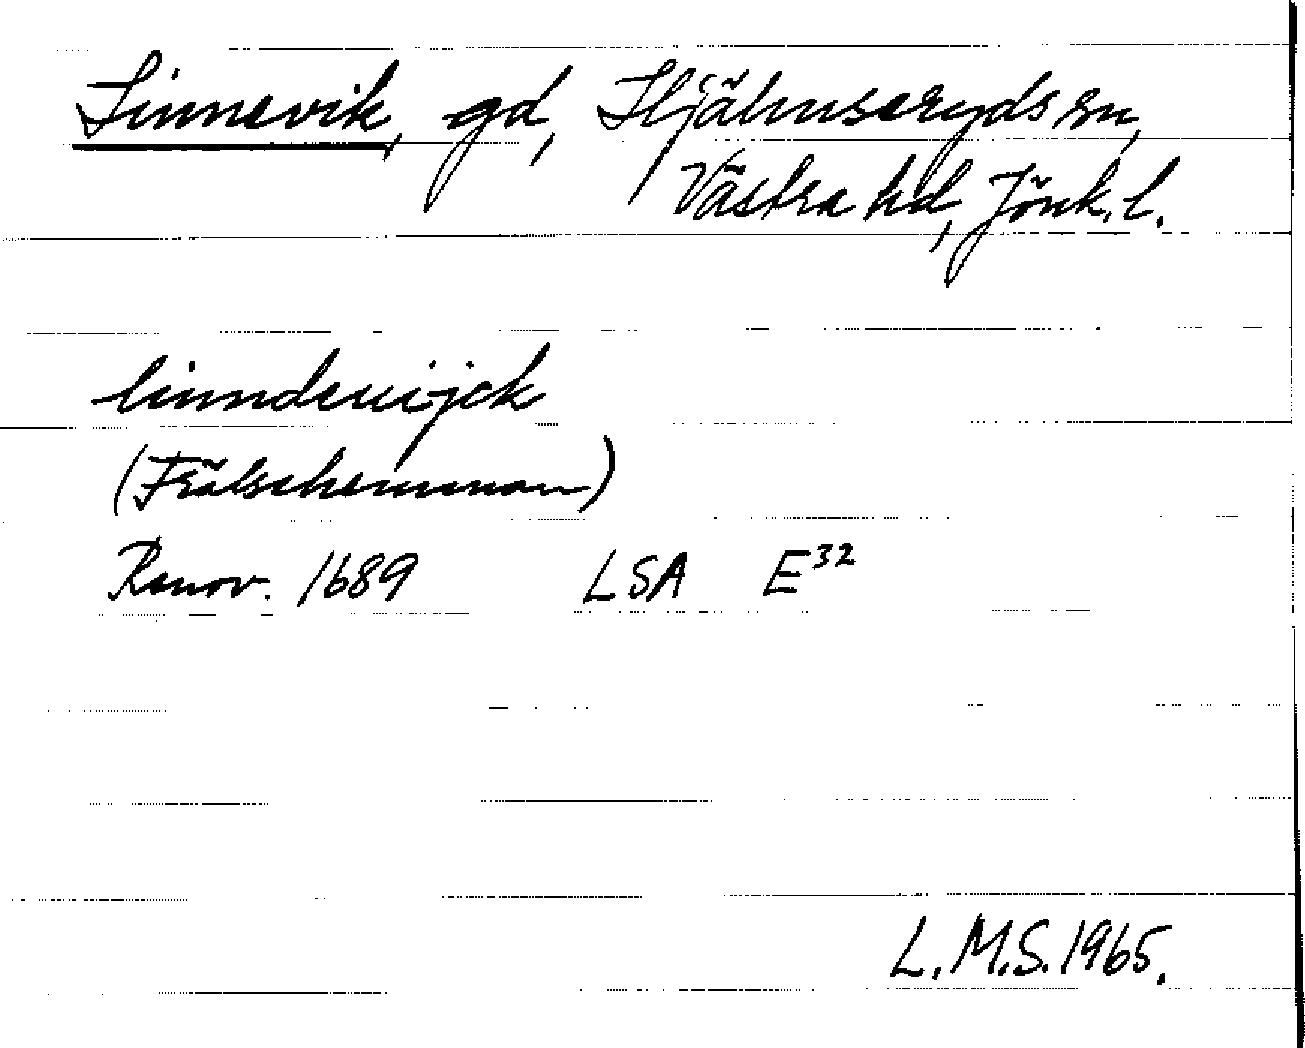 Linnevik, gd, Hjälmseryds sn,
Västra hd, Jönk. l.
linndeuijck
(Frälsehemman)
Renov. 1689 LSA E³²
L.M.S. 1965.